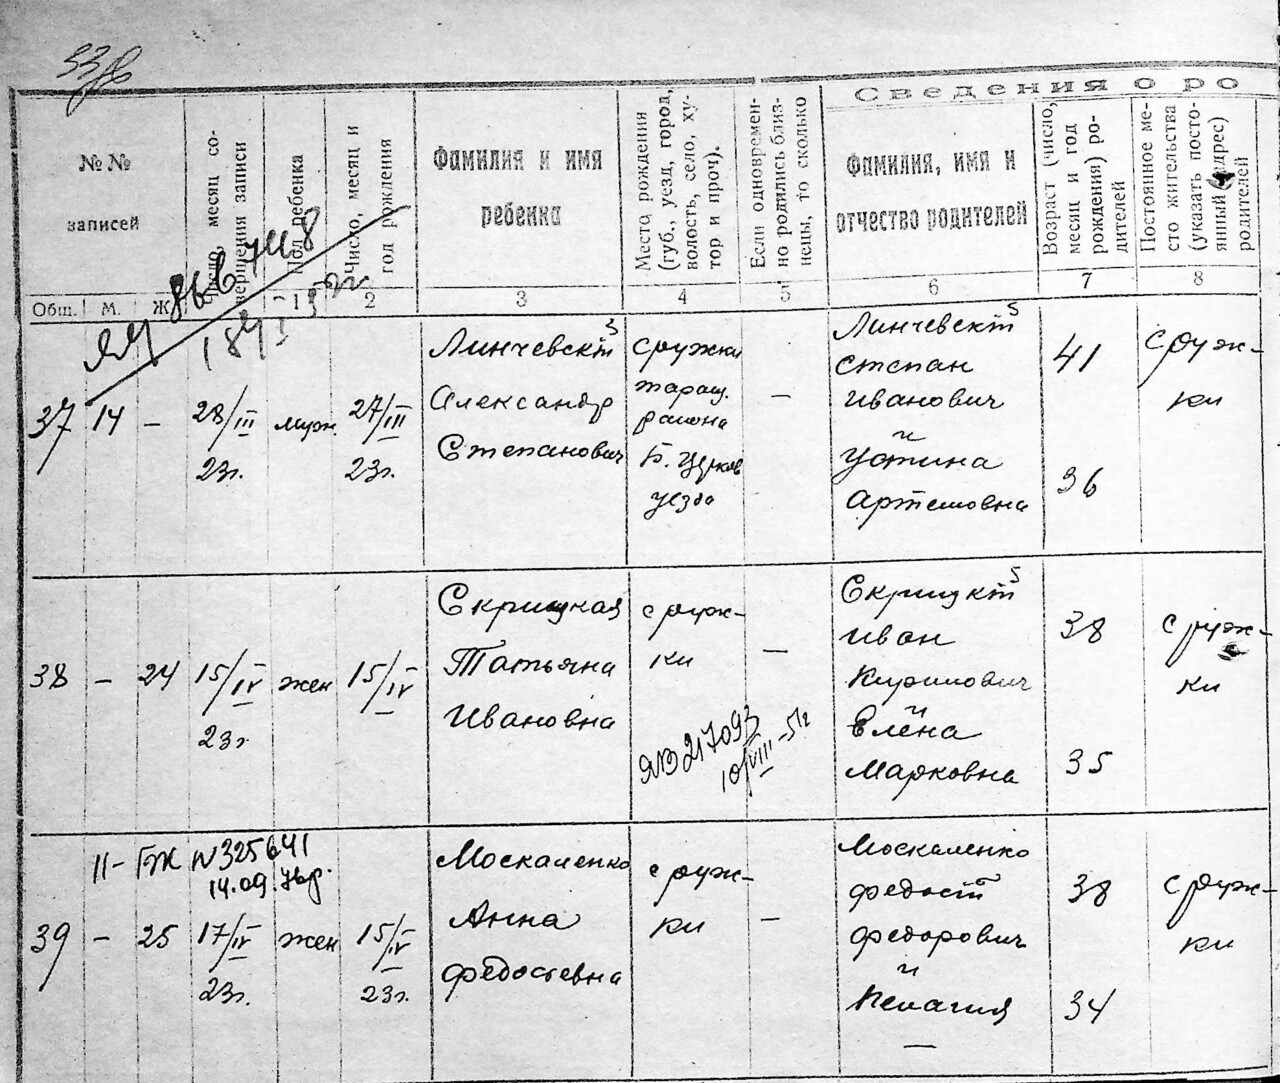 Сведения о ро
№№
записей
Число, месяц совершения записи
Пол ребенка
Число, месяц и
год рождения
Фамилия и имя
ребенка
Место рождения
(губ., уезд, город,
волость, село, ху-
тор и проч).
Если одновремен-
но родились близ-
нецы, то сколько
Фамилия, имя и
отчество родителей
Возраст (число,
месяц и год
рождения) ро-
дителей
Постоянное ме-
сто жительства
(указать посто-
янный адрес)
родителей
Общ. М. Ж. 1 2 3 4 5 6 7 8
37 14 –
28/III
23г.
муж.
27/III
23г.
Линчевскій
Александр
Степанович
с ружки
таращ.
района
Б. Церков
уезда
—
Линчевскій
Степан
Иванович
и
Устина
Артемовна
41
36
с руж-
ки
38 – 24
15/IV
23г
жен
15/IV
Скрицкая
Татьяна
Ивановна
с руж-
ки
—
ЯВ 217093
10/VIII-51г
Скрицкій
Иван
Кирилович
и
Елена
Марковна
38
35
с руж-
ки
II-ГЖ N325641
14.09.
39 – 25
17/IV
23г.
жен
15/IV
23г.
Москаленко
Анна
Федосьевна
с руж-
ки
—
Москаленко
Федосій
Федорович
и
Пелагия
—
38
34
с руж-
ки